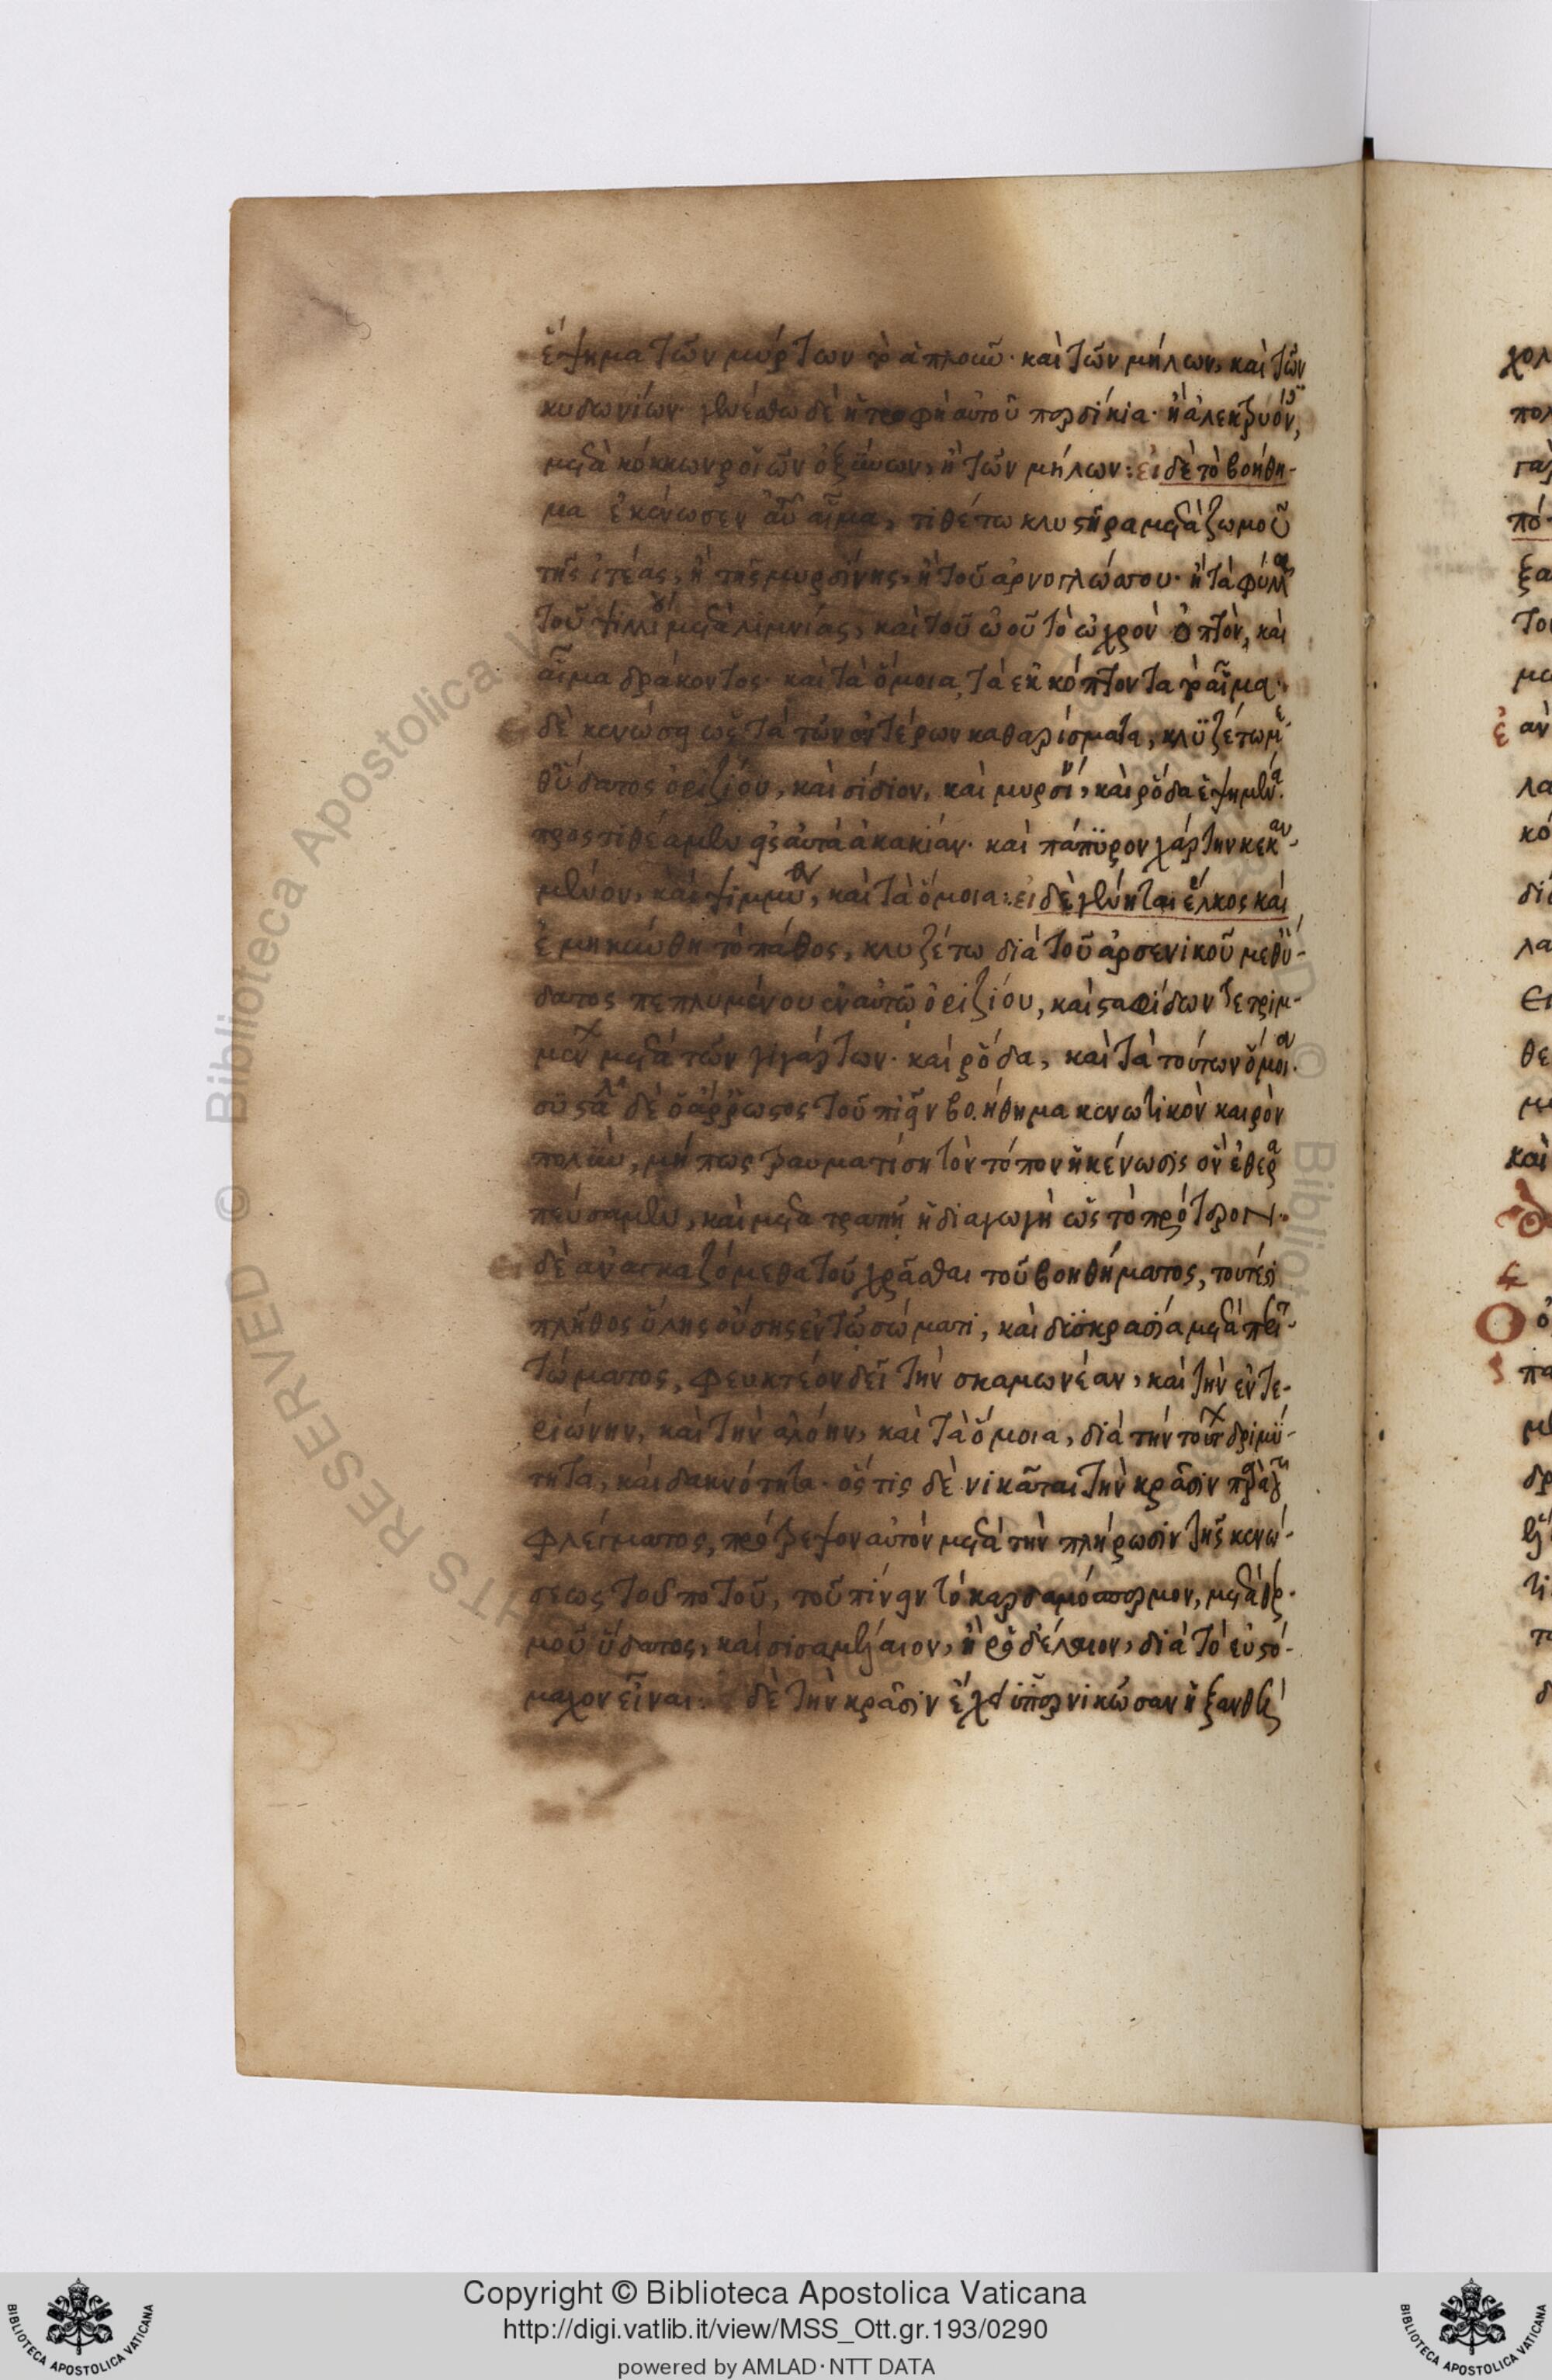 ἕψημα τῶν μύρτων τὸ ἁπλοῦν· καὶ τῶν μήλων, καὶ τῶν
κυδωνίων· γενέσθω δὲ ἡ τροφὴ αὐτοῦ περδίκια· ἢ ἀλεκτρυόνων,
μετὰ κόκκων ῥοϊῶν ὀξίνων, ἢ τῶν μήλων: εἰ δὲ τὸ βοήθη-
μα ἐκένωσεν αἷμα, τιθέτω κλυστῆρα μετὰ ζωμοῦ
τῆς ἰτέας, ἢ τῆς μυρσίνης, ἢ τοῦ ἀρνογλώσσου· ἢ τὰ φύλλα
τοῦ ψιλλίου μετὰ λιμνίας, καὶ τοῦ ὠοῦ τὸ ὠχρὸν ὀπτὸν, καὶ
αἷμα δράκοντος· καὶ τὰ ὅμοια τὰ ἐκκόπτοντα τὸ αἷμα·
δὲ κενώση ὡς τὰ τῶν ἐντέρων καθαρίσματα, κλϋζέτω με
θ' ὕδατος ὀριζίου, καὶ σίδιον, καὶ μυρσίνη, καὶ ῥόδα ἐψημένα.
προστιθέαμεν εἰς αὐτὰ ἀκακίαν· καὶ πάπϋρον χάρτην κεκαυ-
μένον, καὶ ψιμμύθιον, καὶ τὰ ὅμοια: εἰ δὲ γένηται ἕλκος καὶ
ἐμηκύνθη τὸ πάθος, κλυζέτω διὰ τοῦ ἀρσενικοῦ μεθ' ὕ-
δατος πεπλυμένου ἐν αὐτῷ ὀριζίου, καὶ σταφίδων τετριμ-
μένων μετὰ τῶν γιγάρτων· καὶ ῥόδα, καὶ τὰ τούτων ὅμοια.
δὲ ὁ ἄρρωστος τοῦ πιεῖν βοήθημα κενωτικὸν καιρὸν
πολὺν, μήπως τραυματίση τὸν τόπον ἡ κένωσις ὃν ἐθερα
πεύσαμεν, καὶ μετατραπῇ ἡ διαγωγὴ ὡς τὸ πρότερον.
εἰ δὲ ἀναγκαζόμεθα τοῦ χρᾶσθαι τοῦ βοηθήματος, τουτέστι
πλῆθος ὕλης οὔσης ἐν τῷ σώματι, καὶ δϋσκρασία μετὰ περιτ-
τώματος, φευκτέον δεῖ τὴν σκαμωνέαν, καὶ τὴν ἐντε-
ριώνην, καὶ τὴν ἀλόην, καὶ τὰ ὅμοια, διὰ τὴν τούτων δριμύ-
τητα, καὶ δακνότητα· ὅστις δὲ νικᾶται τὴν κρᾶσιν παρὰ τοῦ
φλέγματος, πρότρεψον αὐτὸν μετὰ τὴν πλήρωσιν τῆς κενώ-
σεως τοῦ ποτοῦ, τοῦ πίνειν τὸ καρδαμόσπερμον, μετὰ θερ-
μοῦ ὕδατος, καὶ σισαμέλαιον, ἢ ῥοδέλαιον, διὰ τὸ εὐστό-
μαχον εἶναι: δὲ τὴν κρᾶσιν ἔχει ὑπερνικώσαν ἡ ξανθὴ
Copyright © Biblioteca Apostolica Vaticana
http://digi.vatlib.it/view/MSS_Ott.gr.193/0290
powered by AMLAD·NTT DATA